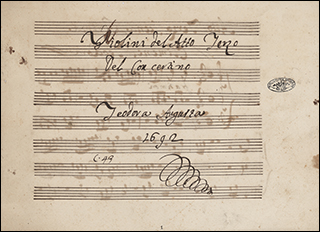 Violini del Atto Terzo
Del Concertino
Teodora Augusta
1692
C. 49
1